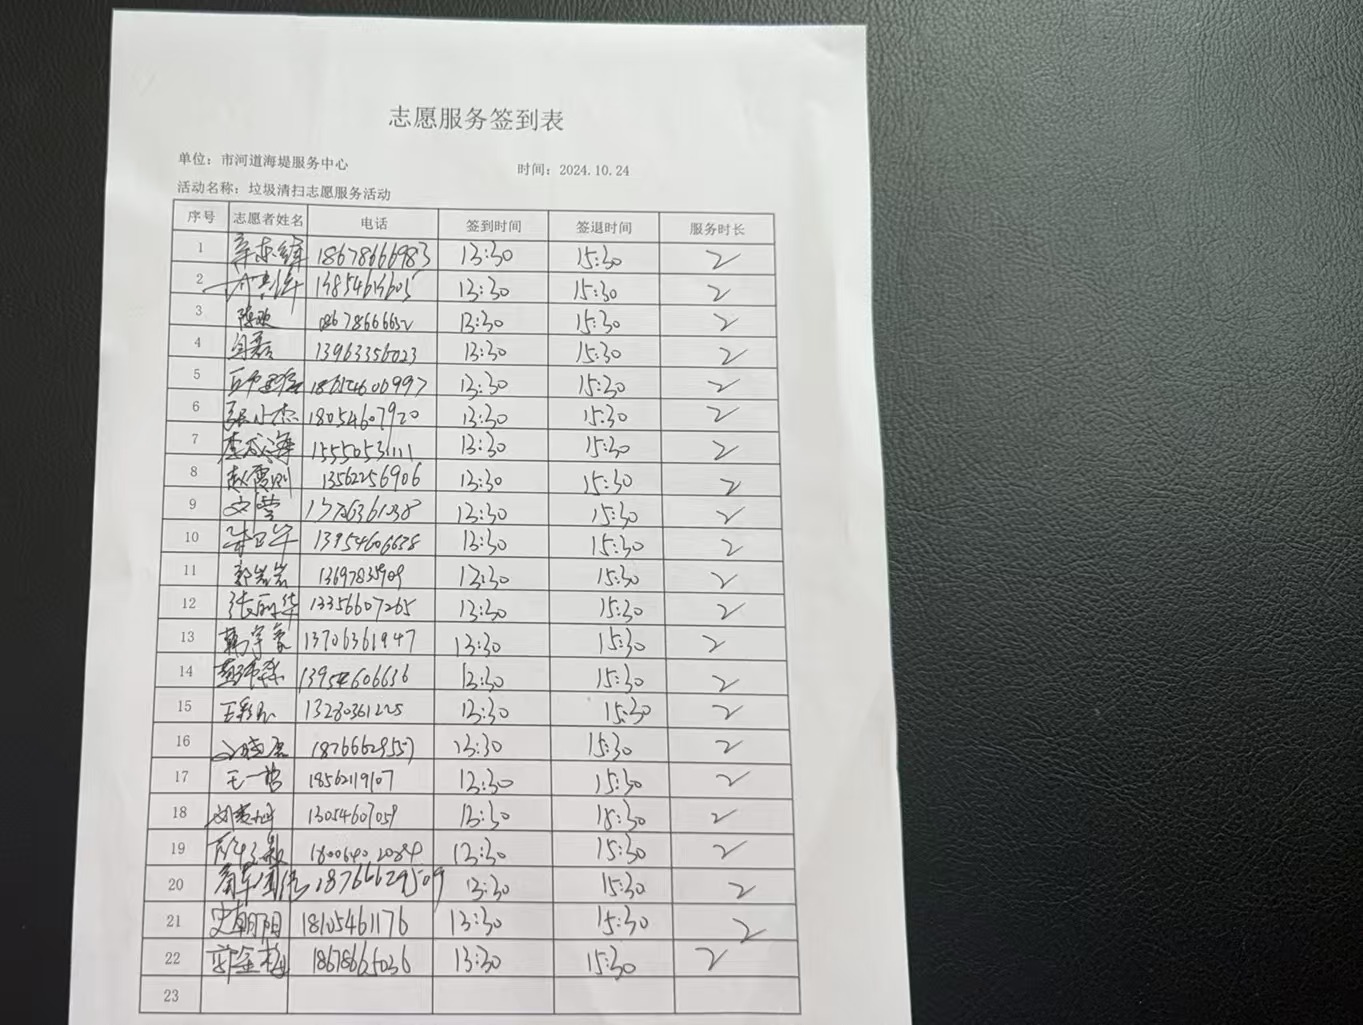 志愿服务签到表
单位：市河道海堤服务中心 时间：2024.10.24
活动名称：垃圾清扫志愿服务活动
序号 志愿者姓名 电话 签到时间 签退时间 服务时长
1 18678666983 13:30 15:30 2
2 13:30 15:30 2
3 陈欢 13:30 15:30 2
4 闫磊 13963356023 13:30 15:30 2
5 13:30 15:30 2
6 张小杰 18054607920 13:30 15:30 2
7 李成海 15550531111 13:30 15:30 2
8 赵霞刚 13562256906 13:30 15:30 2
9 文莹 13:30 15:30 2
10 13954606638 13:30 15:30 2
11 郭岩岩 13:30 15:30 2
12 张丽华 13356607265 13:30 15:30 2
13 韩宇家 13706361947 13:30 15:30 2
14 13954606636 13:30 15:30 2
15 13280361225 13:30 15:30 2
16 18766629557 13:30 15:30 2
17 王一茜 18562119107 13:30 15:30 2
18 13054607059 13:30 18:30 2
19 18006402084 13:30 15:30 2
20 18766629509 13:30 15:30 2
21 史朝阳 18105461176 13:30 15:30 2
22 薛金梅 18678665036 13:30 15:30 2
23